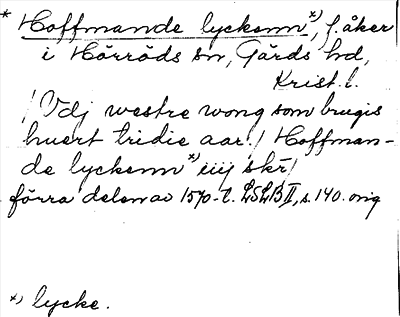 * Hoffmande lyckenn *), f. åker
i Hörröds sn, Gärds hd,
Krist. l.
/ Vdj westre wong som brugis
huert tridie aar! / Hoffman-
de lyckenn *) iiij skr̄ /
förra delen av 1570-t. LSLB II, s. 140. orig
*) lycke.